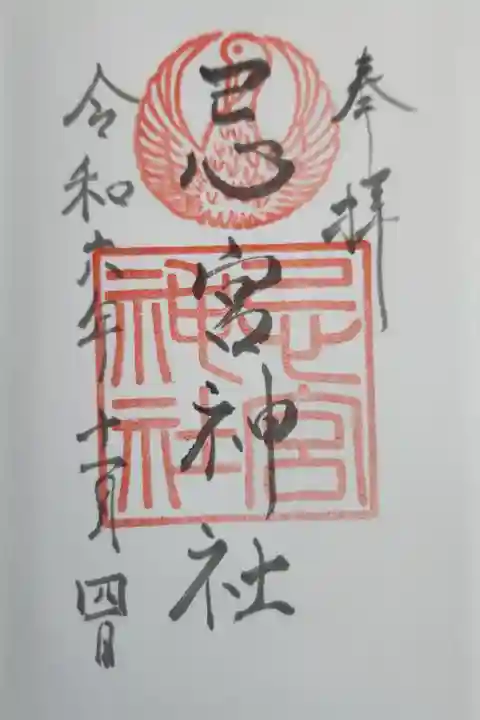 奉拝
忌宮神社
令和六年十一月四日
忌宮
神社